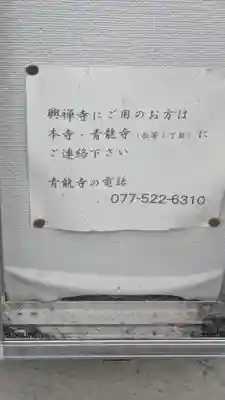 興禅寺にご用のお方は
本寺・青龍寺(長等1丁目)に
ご連絡下さい
青龍寺の電話
077-522-6310